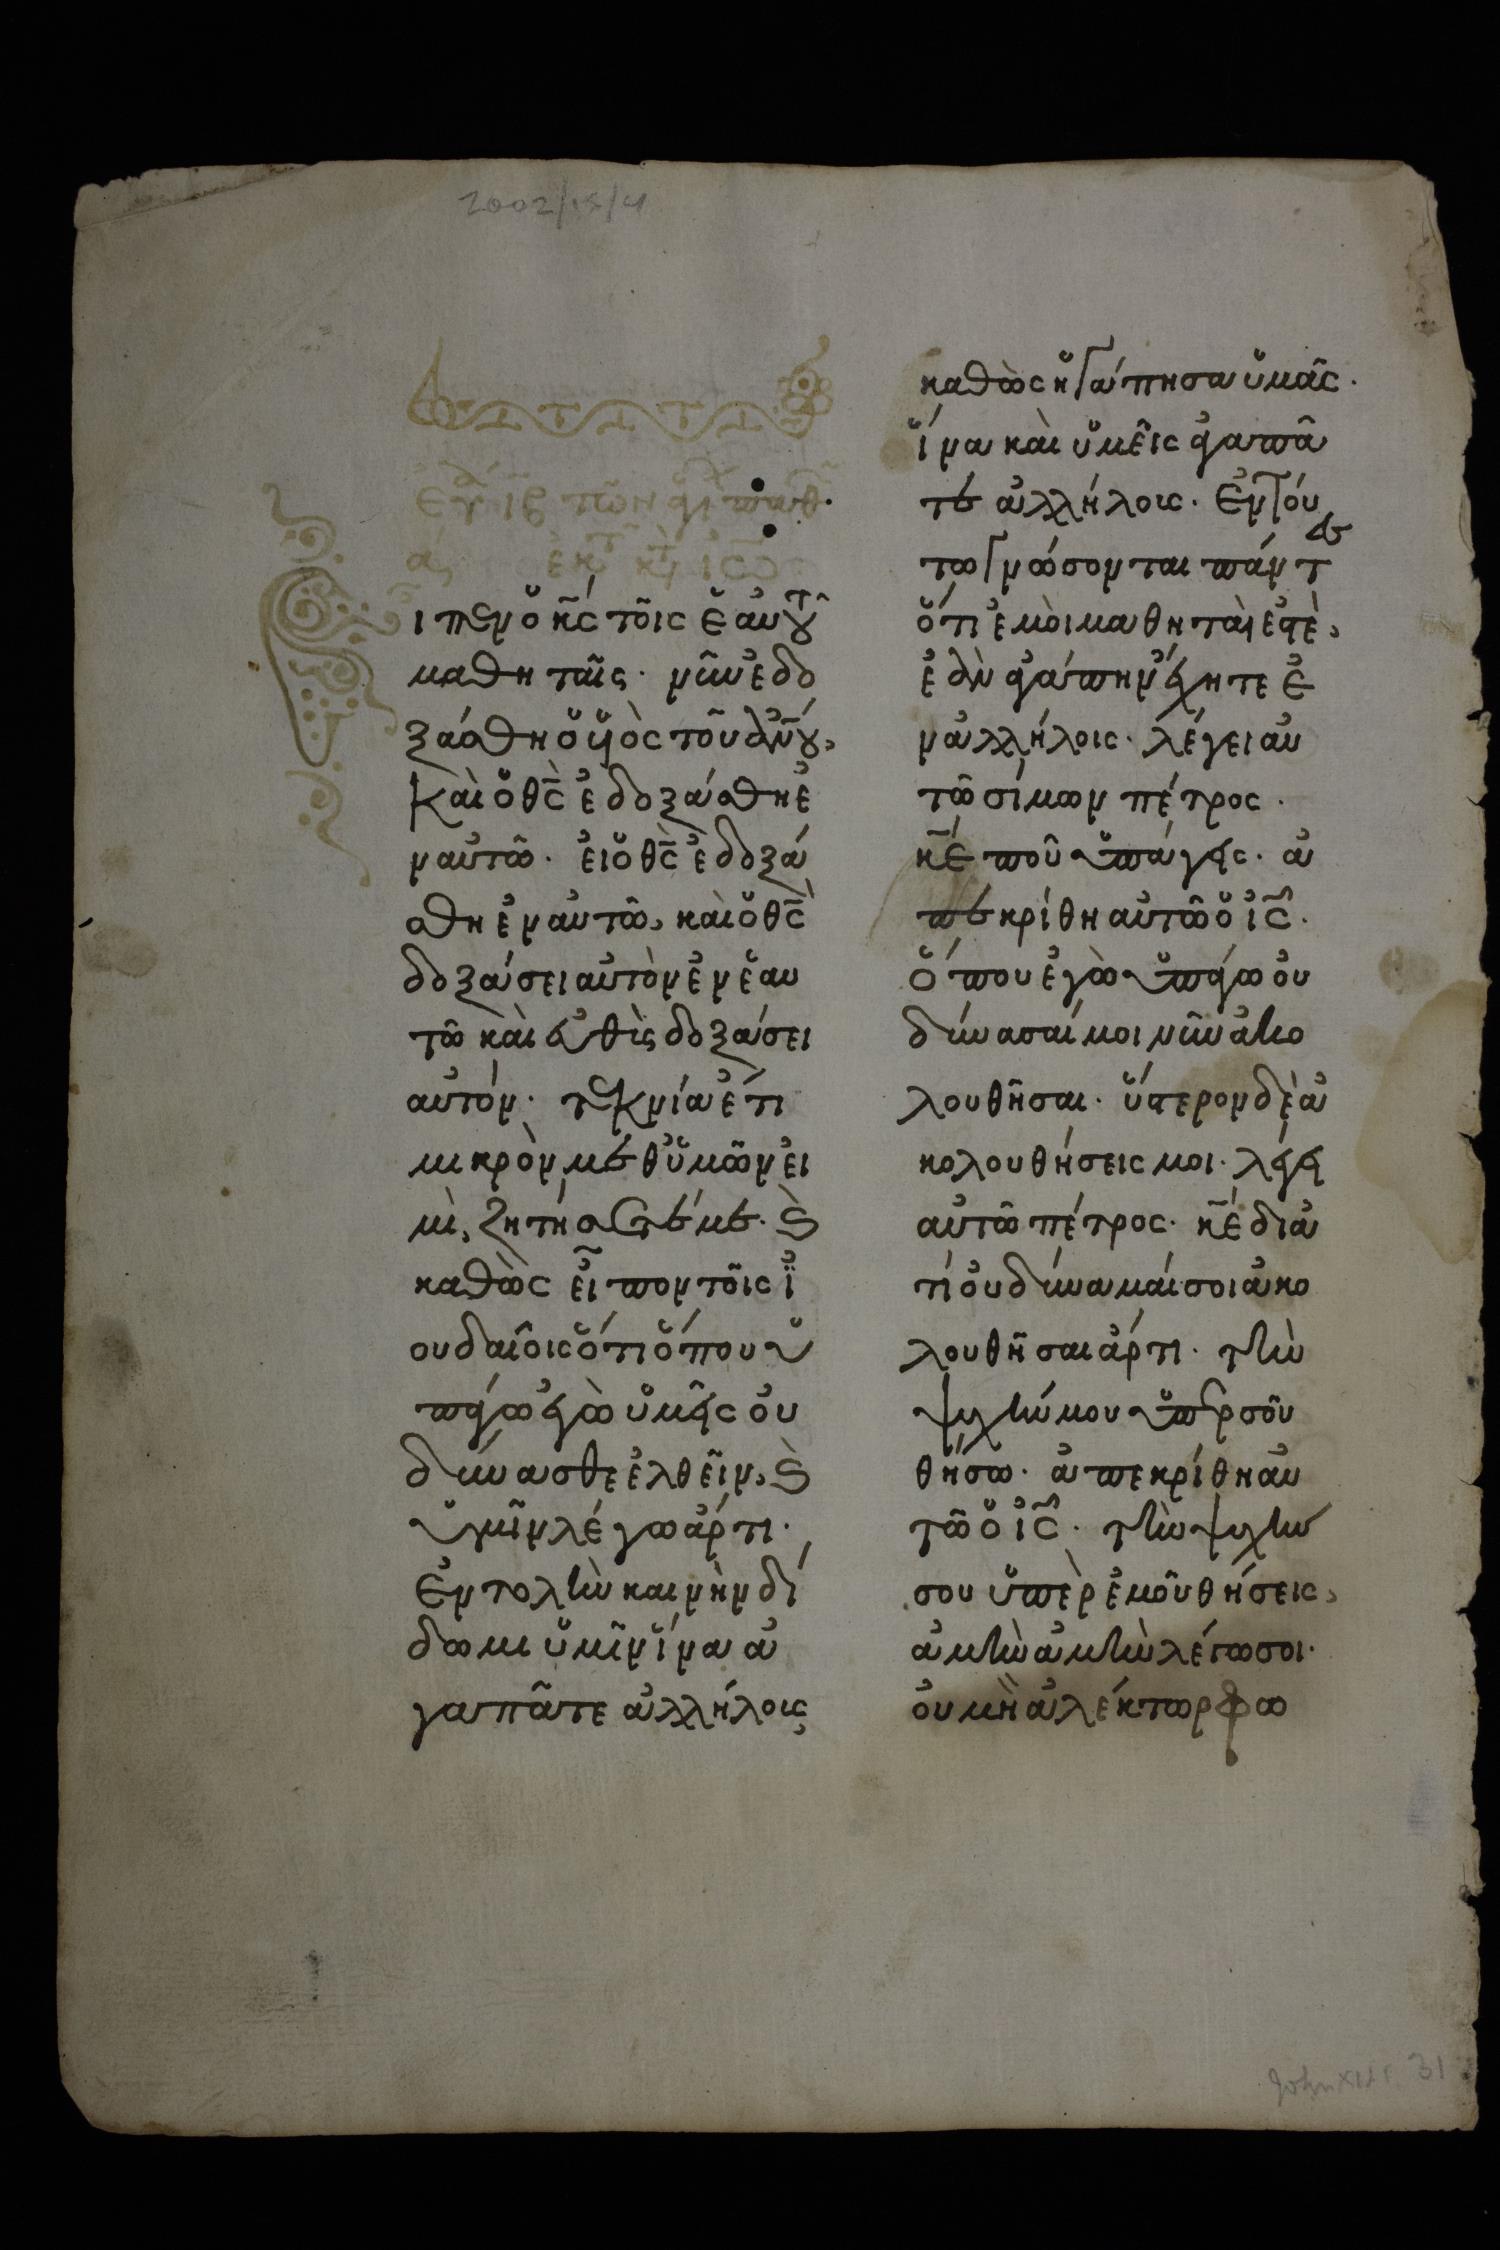 2002/15/4
ιπεν ὁ κ̅ς τοῖς ἑαυτοῦ
μαθηταῖς· νῦν ἐδο
ξάσθη ὁ υἱὸς τοῦ ἀν̅ου,
Καὶ ὁ θ̅ς ἐδοξάσθη ἐ
ν αὐτῶ· εἰ ὁ θ̅ς ἐδοξά
σθη ἐν αὐτῶ, καὶ ὁ θ̅ς
δοξάσει αὐτὸν ἐν ἑαυ
τῶ καὶ εὐθὶς δοξάσει
αὐτόν· τεκνία ἔτι
μικρὸν μεθ ὑμῶν εἰ
μὶ, ζητήσετέ με. καὶ
καθὼς εἶπον τοῖς ἰ
ουδαίοις ὅτι ὅπου ὑ
πάγω ἐγὼ ὑμεῖς οὐ
δύνασθε ἐλθεῖν, καὶ
ὑμῖν λέγω ἄρτι·
Ἐντολὴν καινὴν δί
δωμι ὑμῖν ἵνα ἀ
γαπᾶτε ἀλλήλοις
καθὼς ἠγάπησα ὑμᾶς·
ἵνα καὶ ὑμεῖς ἀγαπᾶ
τε ἀλλήλοις· Ἐν τού
τω γνώσονται πάντες
ὅτι ἐμοὶ μαθηταὶ ἐστὲ,
ἐὰν ἀγάπην ἔχητε ἐ
ν ἀλλήλοις· λέγει αὐ
τῶ σίμων πέτρος·
κ̅ε ποῦ ὑπάγεις· ἀ
πεκρίθη αὐτῶ ὁ ι̅ς·
Ὅπου ἐγὼ ὑπάγω οὐ
δύνασαί μοι νῦν ἀκο
λουθῆσαι· ὕστερον δὲ ἀ
κολουθήσεις μοι· λέγει
αὐτῶ πέτρος· κ̅ε διὰ
τί οὐ δύναμαί σοι ἀκο
λουθῆσαι ἄρτι· τὴν
ψυχήν μου ὑπὲρ σοῦ
θήσω· ἀπεκρίθη αὐ
τῶ ὁ ι̅ς· τὴν ψυχήν
σου ὑπὲρ ἐμοῦ θήσεις,
ἀμὴν ἀμὴν λέγω σοι·
οὐ μὴ ἀλέκτωρ φω
John XIII 31